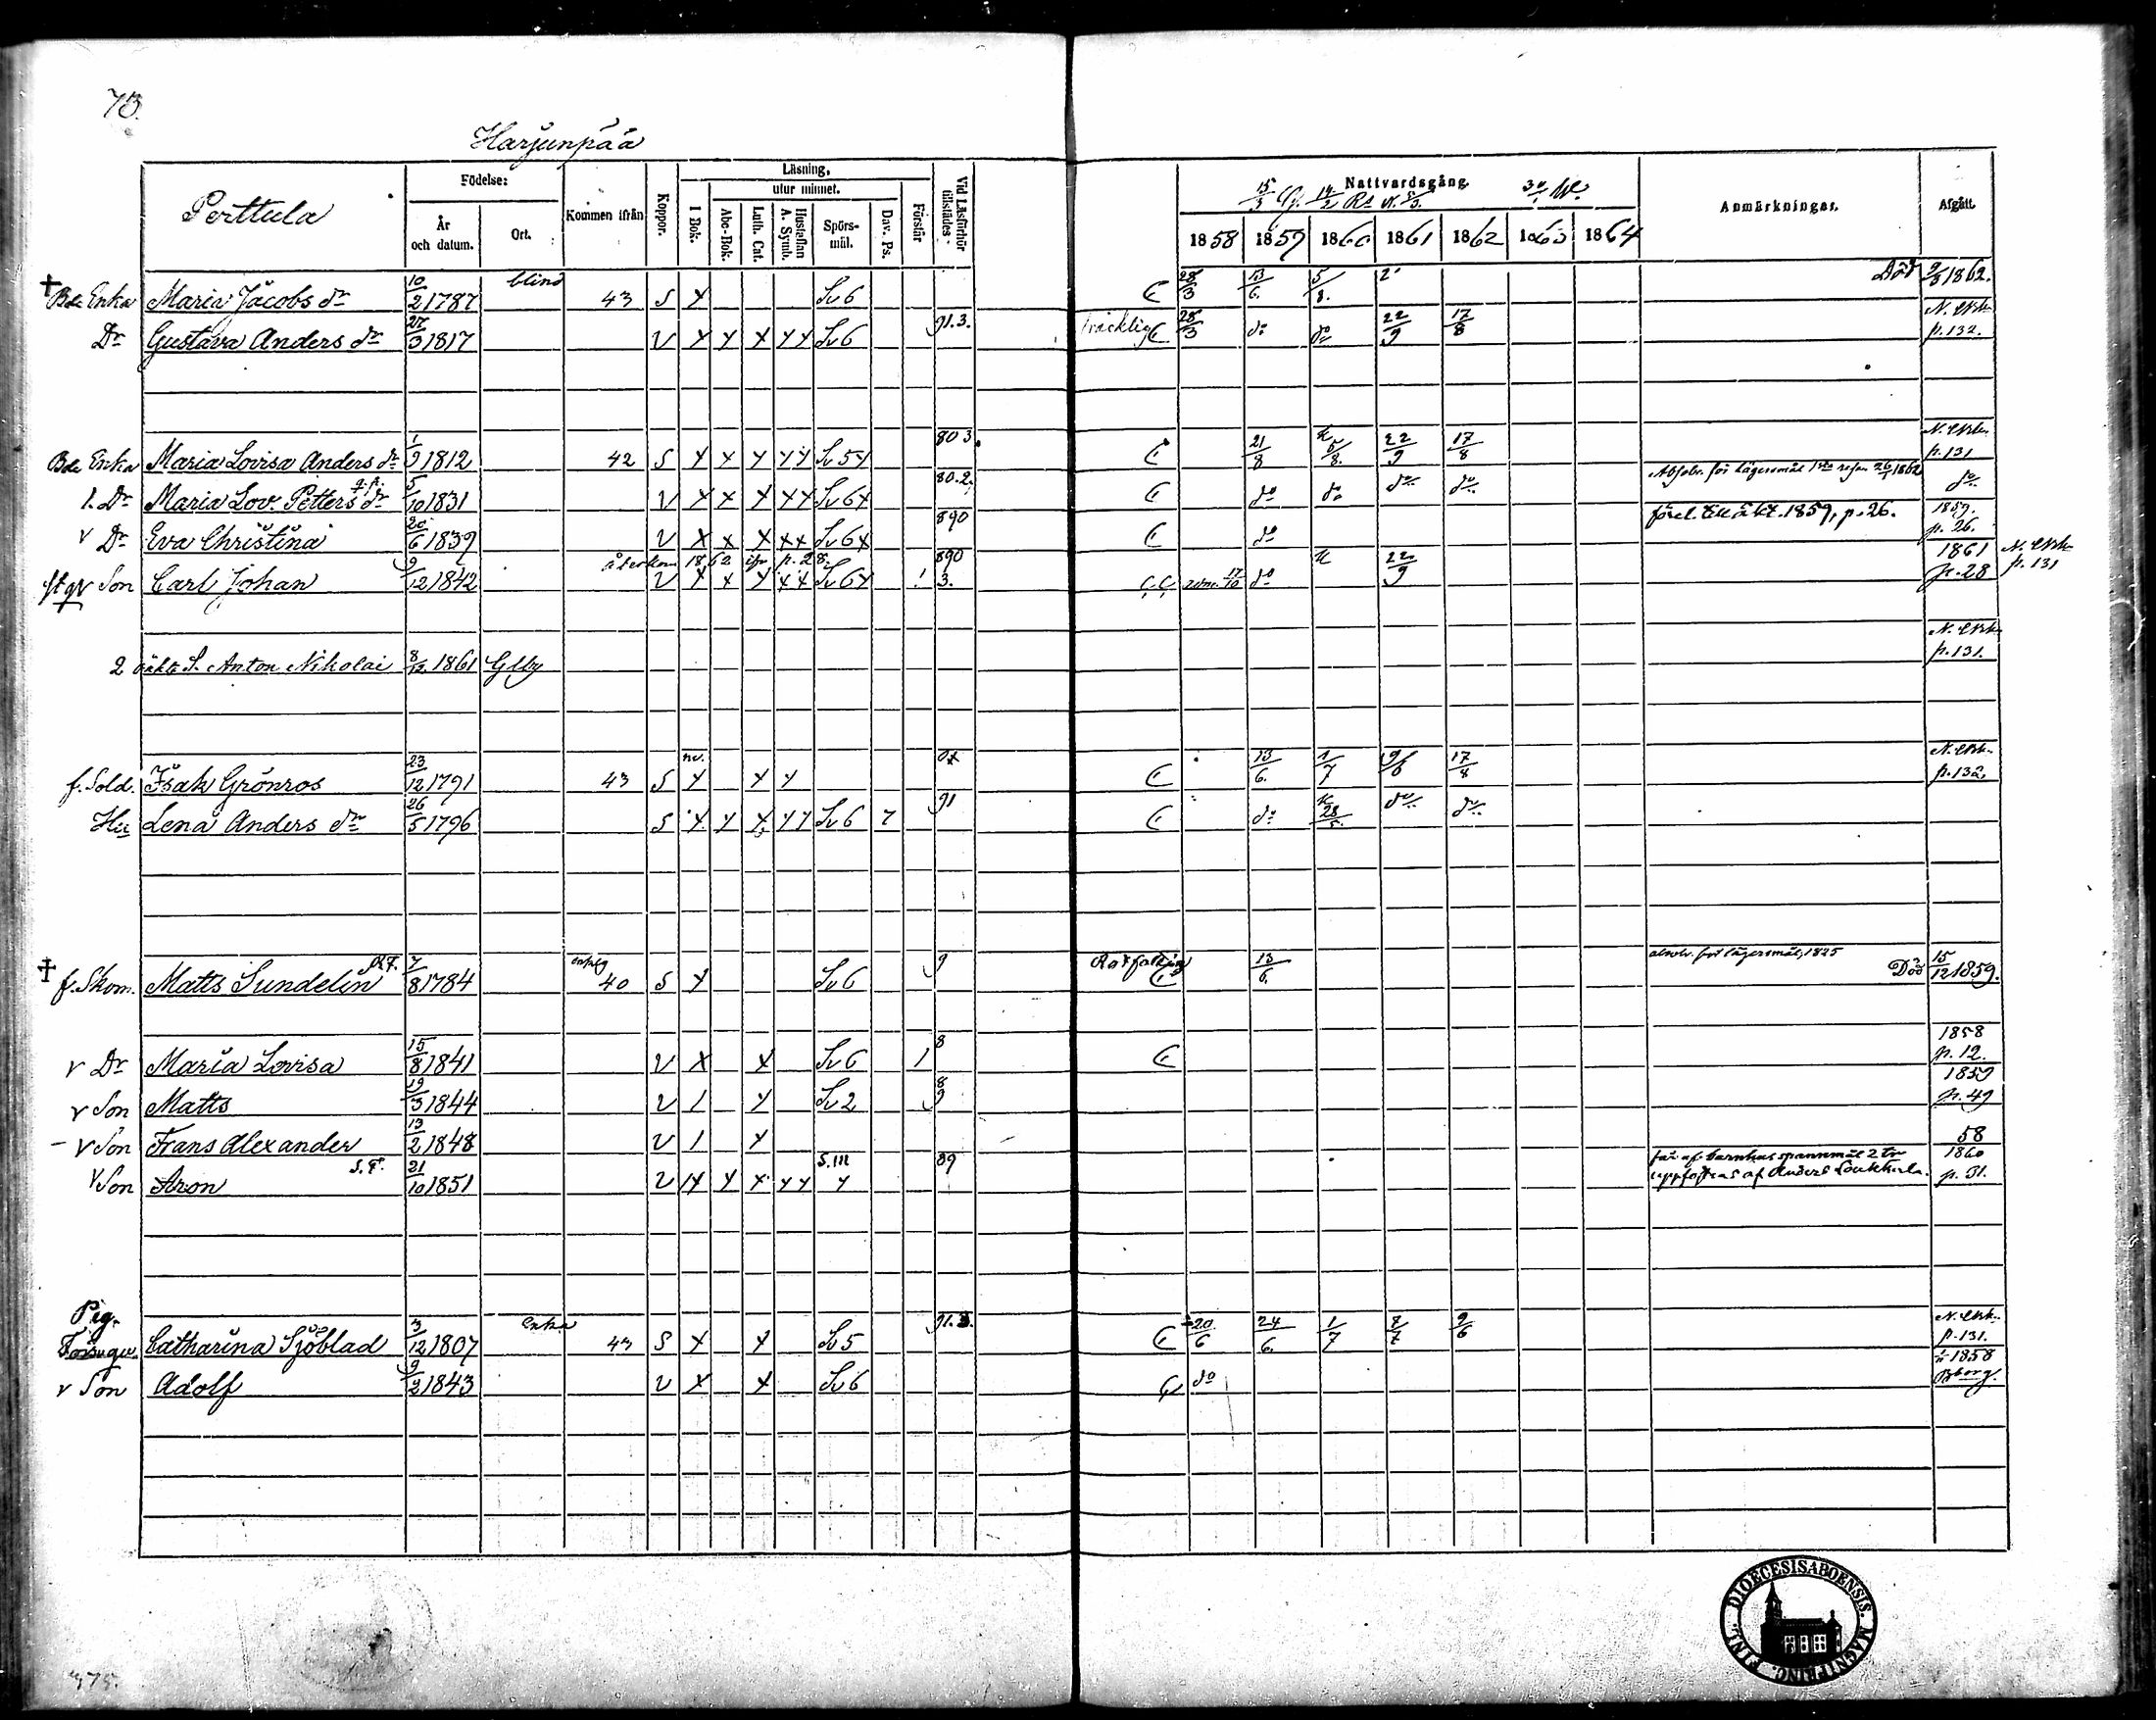 73.
Harjunpää
Perttula
Födelse:
År och datum.
Ort.
Kommen ifrån
Koppor.
Läsning,
utur minnet.
I Bok.
Abc-Bok.
Luth. Cat.
Hustaflan A. Symb.
Spörs-mål.
Dav. Ps.
Förstår
Vid Läsförhör tillstädes
Nattvardsgång.
1858 1859 1860 1861 1862 1863 1864
Anmärkningar.
Afgått.
Bde Enka Maria Jacobs dr 10/2 1787 blind 43 S x Sv 6 28/3 13/6. 5/8. Död 1862.
Dr Gustava Anders dr 27/3 1817 V x x x x x Sv 6 91.3. 28/3 do do 22/9 17/8 p.132.
Bde Enka Maria Lovisa Anders dr 1/9 1812 42 S x x x x x Sv 5x 803. 21/8 5/8. 22/9 17/8 p.131
1. Dr Maria Lov. Petters dr 5/10 1831 V x x x x x Sv 6x 80.2. do do do do do
v Dr Eva Christina 20/6 1839 V x x x x x Sv 6x 890 do 1859, p. 26. 1859. p. 26.
återkom 1862 ifr p. 28.
v Son Carl Johan 9/12 1842 V x x x x x Sv 6x 1 890 3. 17/10 do 22/9 1861 p. 28 p. 131
2 oäkta S. Anton Nikolai 8/12 1861 Glby p.131.
f. Sold. Isak Grönros 23/12 1791 43 S x x x 13/6. 1/7 9/6 17/8 p.132.
Hu Lena Anders dr 26/5 1796 S x x x x x Sv 6 7 91 do 28/5. do do
f. Skom. Matts Sundelin 7/8 1784 40 S x Sv 6 9 13/6. absolv. för lägersmål, 1825 Död 15/12 1859.
v Dr Maria Lovisa 15/8 1841 V x x Sv 6 1 8 1858 p. 12.
v Son Matts 19/3 1844 V 1 x Sv 2 8 9 1859 p. 49
v Son Frans Alexander 13/2 1848 V 1 x 58
v Son Aron 21/10 1851 V x x x x x S.III x 89 får af barnhus spannmål 2 tr 1860
uppfostras af Anders Loukkula. p. 31.
Pig.
Catharina Sjöblad 3/12 1807 enka 43 S x x Sv 5 91.3. 20/6 24/6. 1/7 7/7 9/6 p.131.
v Son Adolf 9/2 1843 V x x Sv 6 do 1858 Bborg.
FINL. DIOECESIS ABOENSIS. MAGNI PRINC.
375.